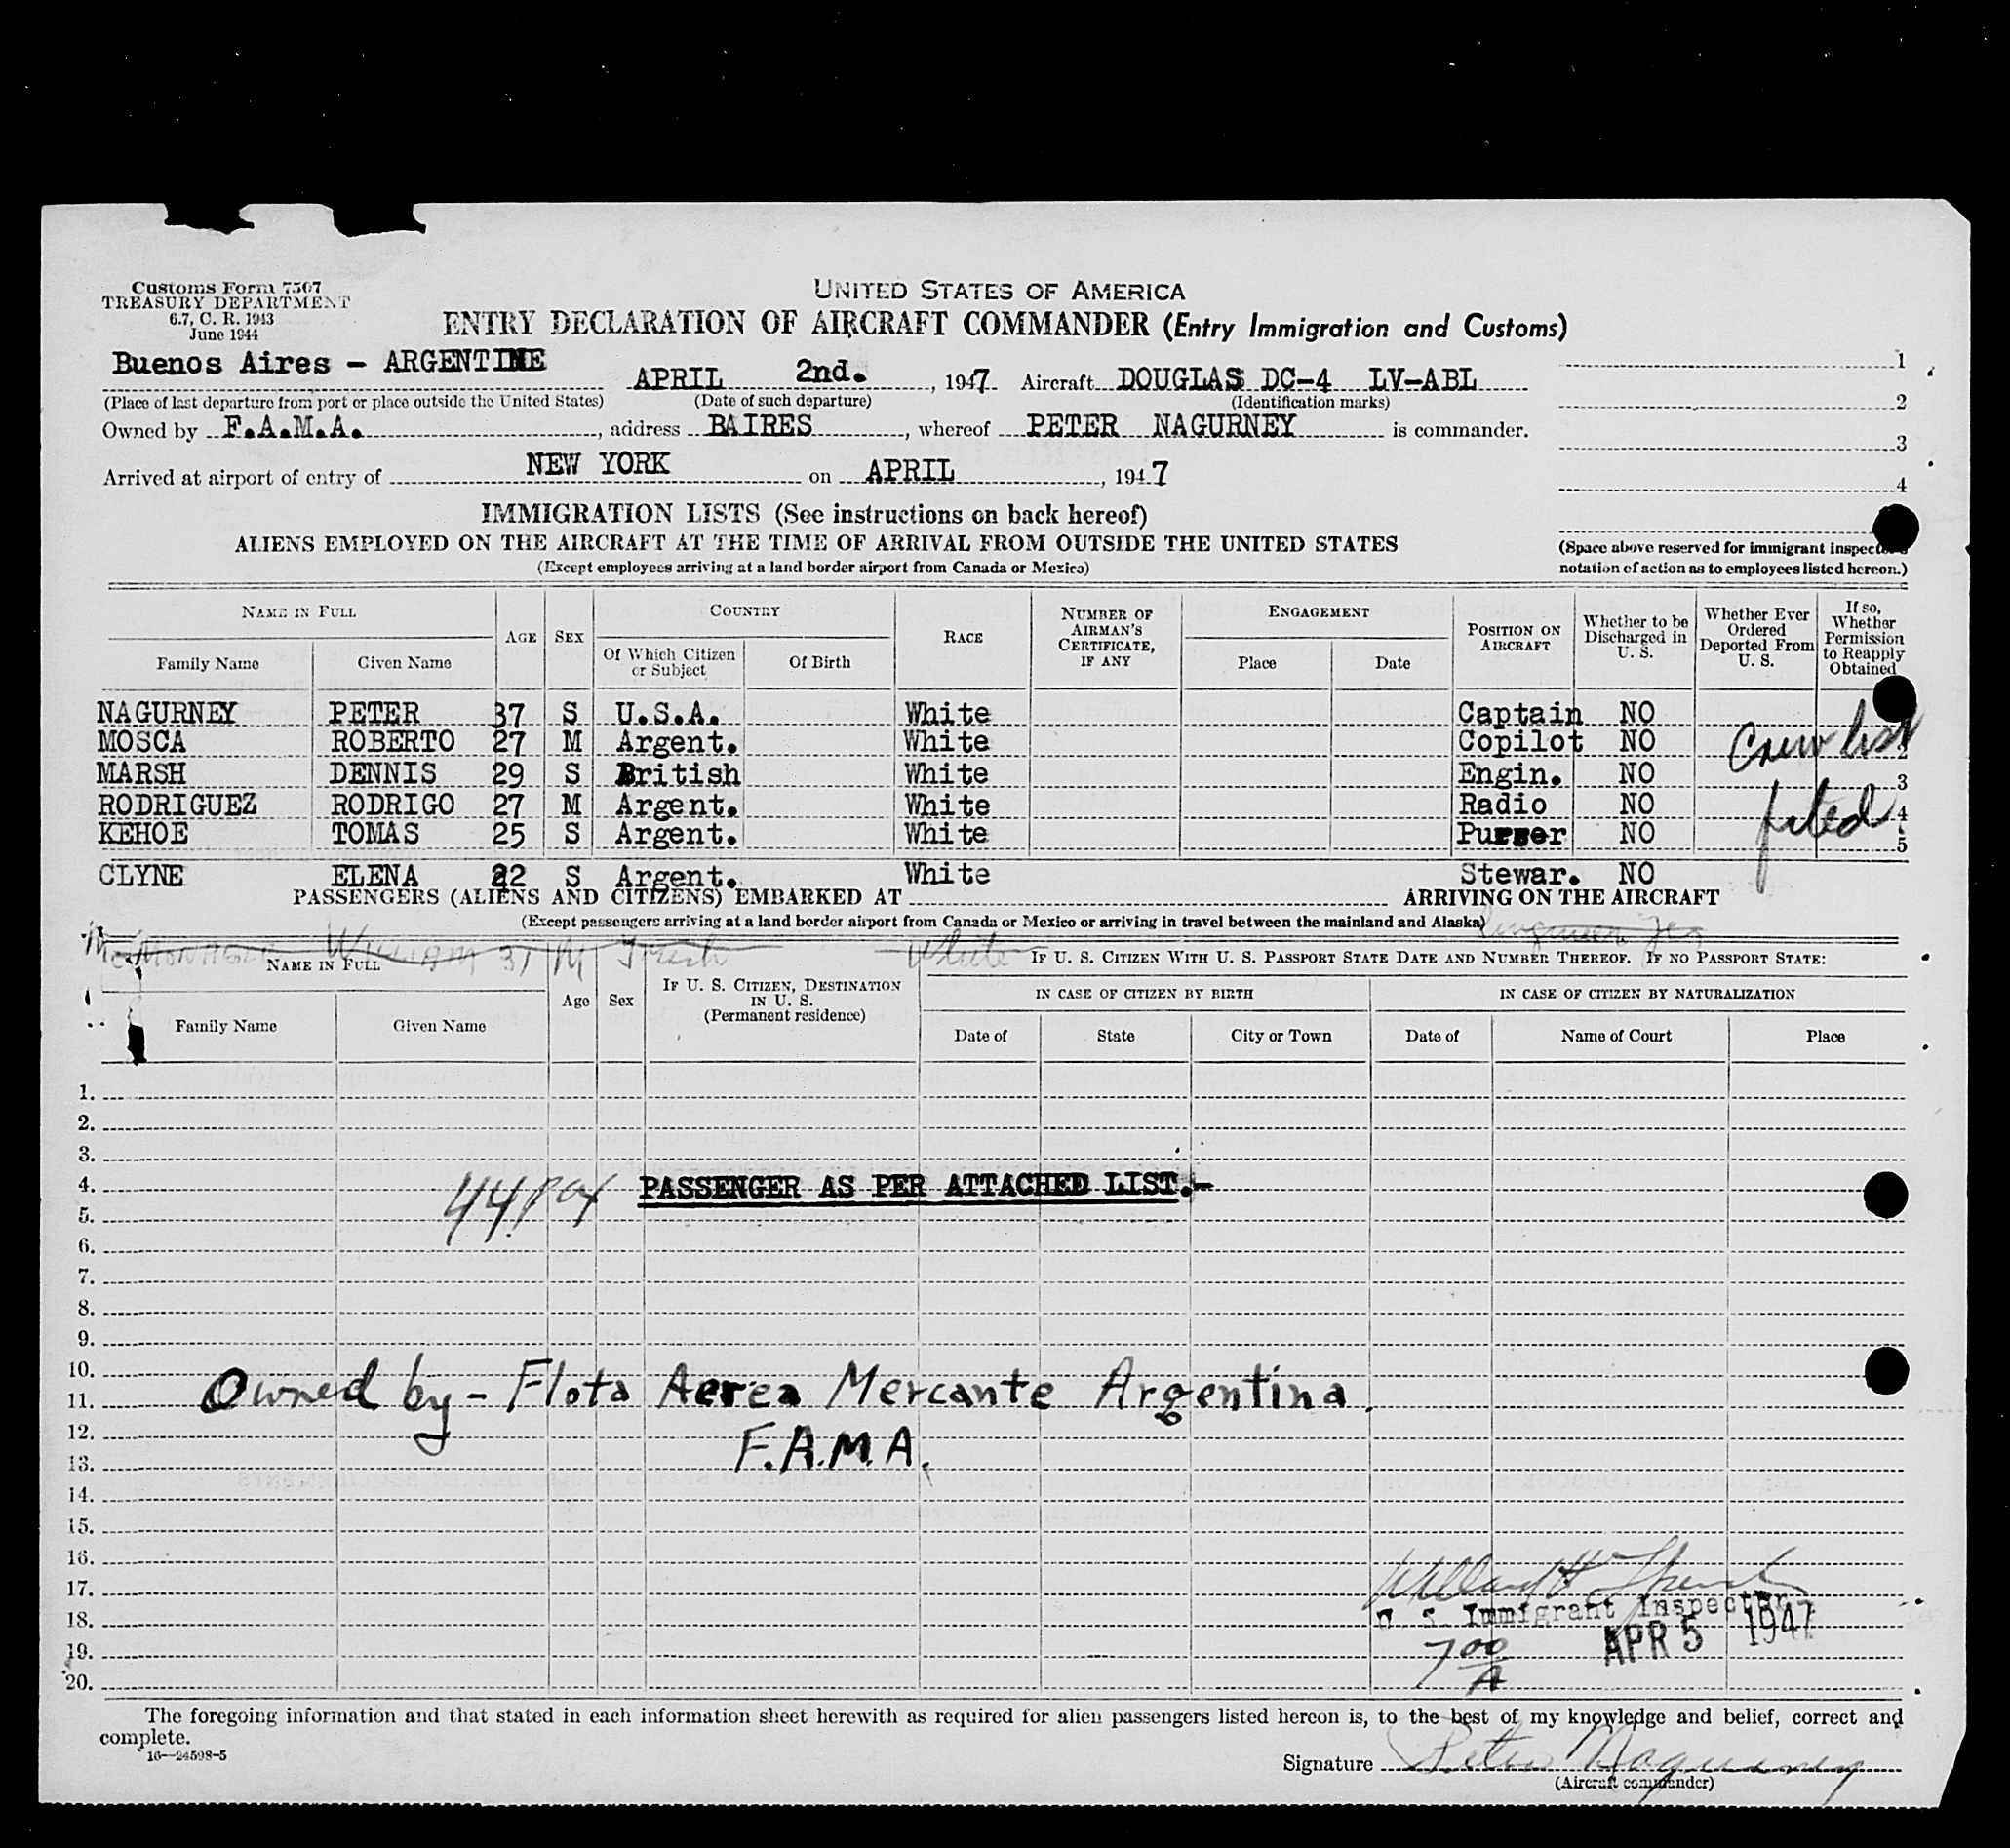 Customs Form 7507
TREASURY DEPARTMENT
6.7, C. R. 1943
June 1944
UNITED STATES OF AMERICA
ENTRY DECLARATION OF AIRCRAFT COMMANDER (Entry Immigration and Customs)
Buenos Aires - ARGENTINE APRIL 2nd. , 1947 Aircraft DOUGLAS DC-4 LV-ABL
(Place of last departure from port or place outside the United States) (Date of such departure) (Identification marks)
Owned by F.A.M.A. , address BAIRES , whereof PETER NAGURNEY is commander.
Arrived at airport of entry of NEW YORK on APRIL , 1947
1
2
3
4
(Space above reserved for immigrant inspector's
notation of action as to employees listed hereon.)
IMMIGRATION LISTS (See instructions on back hereof)
ALIENS EMPLOYED ON THE AIRCRAFT AT THE TIME OF ARRIVAL FROM OUTSIDE THE UNITED STATES
(Except employees arriving at a land border airport from Canada or Mexico)
NAME IN FULL AGE SEX COUNTRY RACE NUMBER OF AIRMAN'S CERTIFICATE, IF ANY ENGAGEMENT POSITION ON AIRCRAFT Whether to be Discharged in U. S. Whether Ever Ordered Deported From U. S. If so, Whether Permission to Reapply Obtained
Family Name Given Name Of Which Citizen or Subject Of Birth Place Date
NAGURNEY PETER 37 S U.S.A. White Captain NO
MOSCA ROBERTO 27 M Argent. White Copilot NO 2
MARSH DENNIS 29 S British White Engin. NO 3
RODRIGUEZ RODRIGO 27 M Argent. White Radio NO 4
KEHOE TOMAS 25 S Argent. White Purser NO 5
CLYNE ELENA 22 S Argent. White Stewar. NO
Crew list
filed
PASSENGERS (ALIENS AND CITIZENS) EMBARKED AT ARRIVING ON THE AIRCRAFT
(Except passengers arriving at a land border airport from Canada or Mexico or arriving in travel between the mainland and Alaska)
WILLIAM 31 M Irish White
NAME IN FULL Age Sex IF U. S. CITIZEN, DESTINATION IN U. S. (Permanent residence) IF U. S. CITIZEN WITH U. S. PASSPORT STATE DATE AND NUMBER THEREOF. IF NO PASSPORT STATE:
IN CASE OF CITIZEN BY BIRTH IN CASE OF CITIZEN BY NATURALIZATION
Family Name Given Name Date of State City or Town Date of Name of Court Place
1.
2.
3.
4. 44 pax PASSENGER AS PER ATTACHED LIST.-
5.
6.
7.
8.
9.
10.
11. Owned by - Flota Aerea Mercante Argentina.
12.
13. F.A.M.A.
14.
15.
16.
17.
18. U. S. Immigrant Inspector
19. 7 00 A APR 5 1947
20.
The foregoing information and that stated in each information sheet herewith as required for alien passengers listed hereon is, to the best of my knowledge and belief, correct and
complete.
16—24598-5
Signature Peter Nagurney
(Aircraft commander)